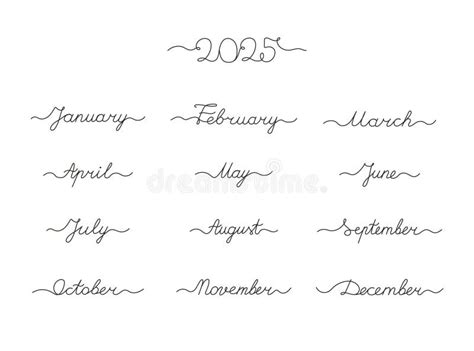 2025
January February March
April May June
dreamstime
July August September
October November December